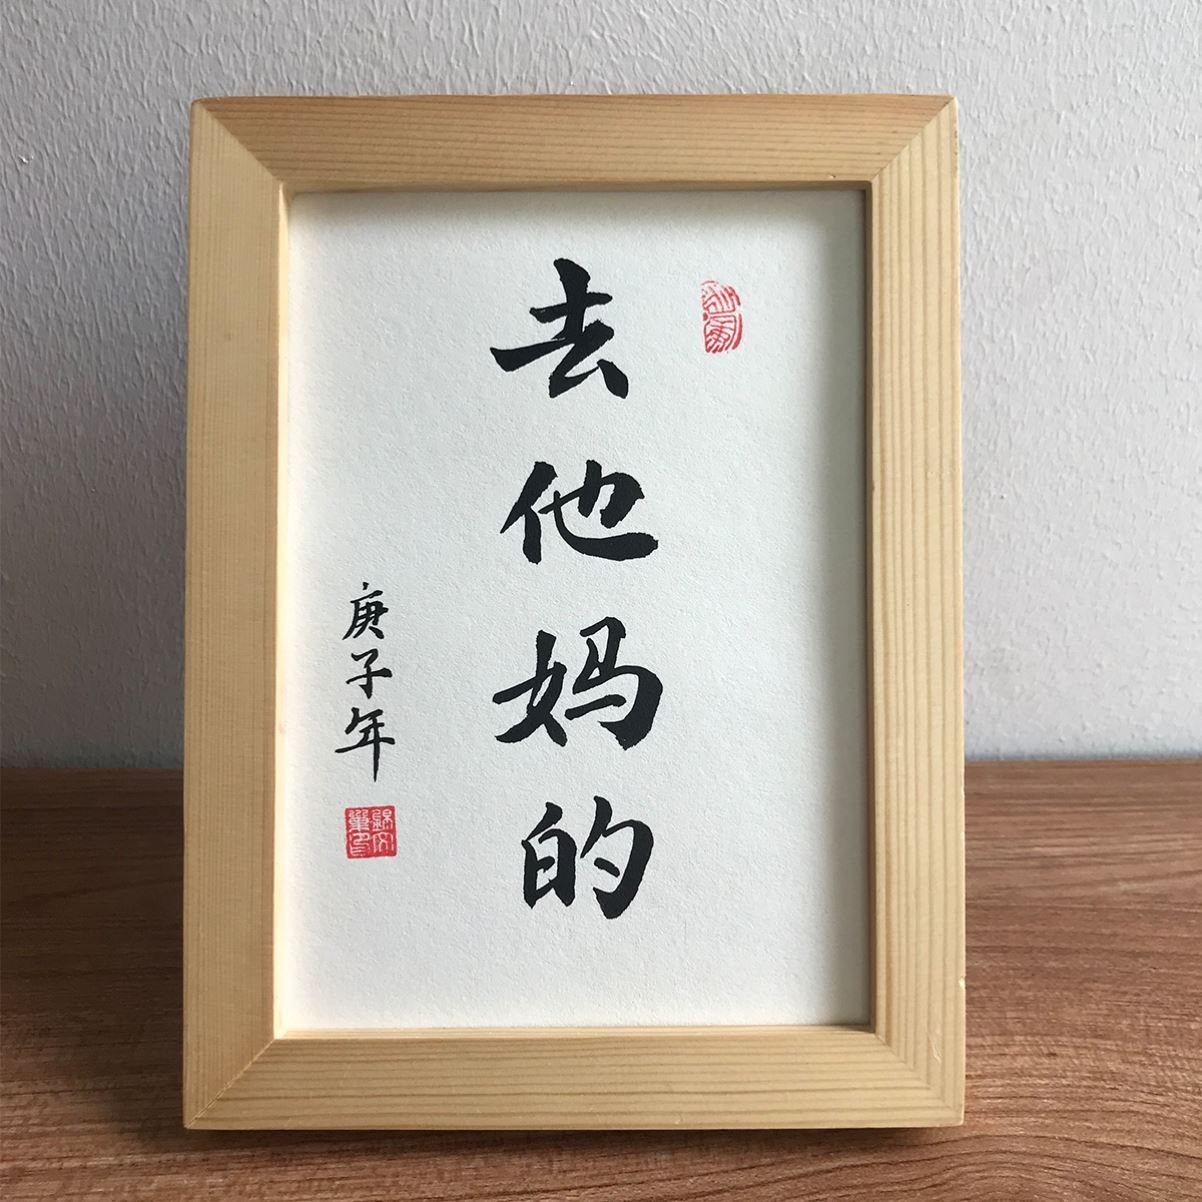 去他妈的
庚子年